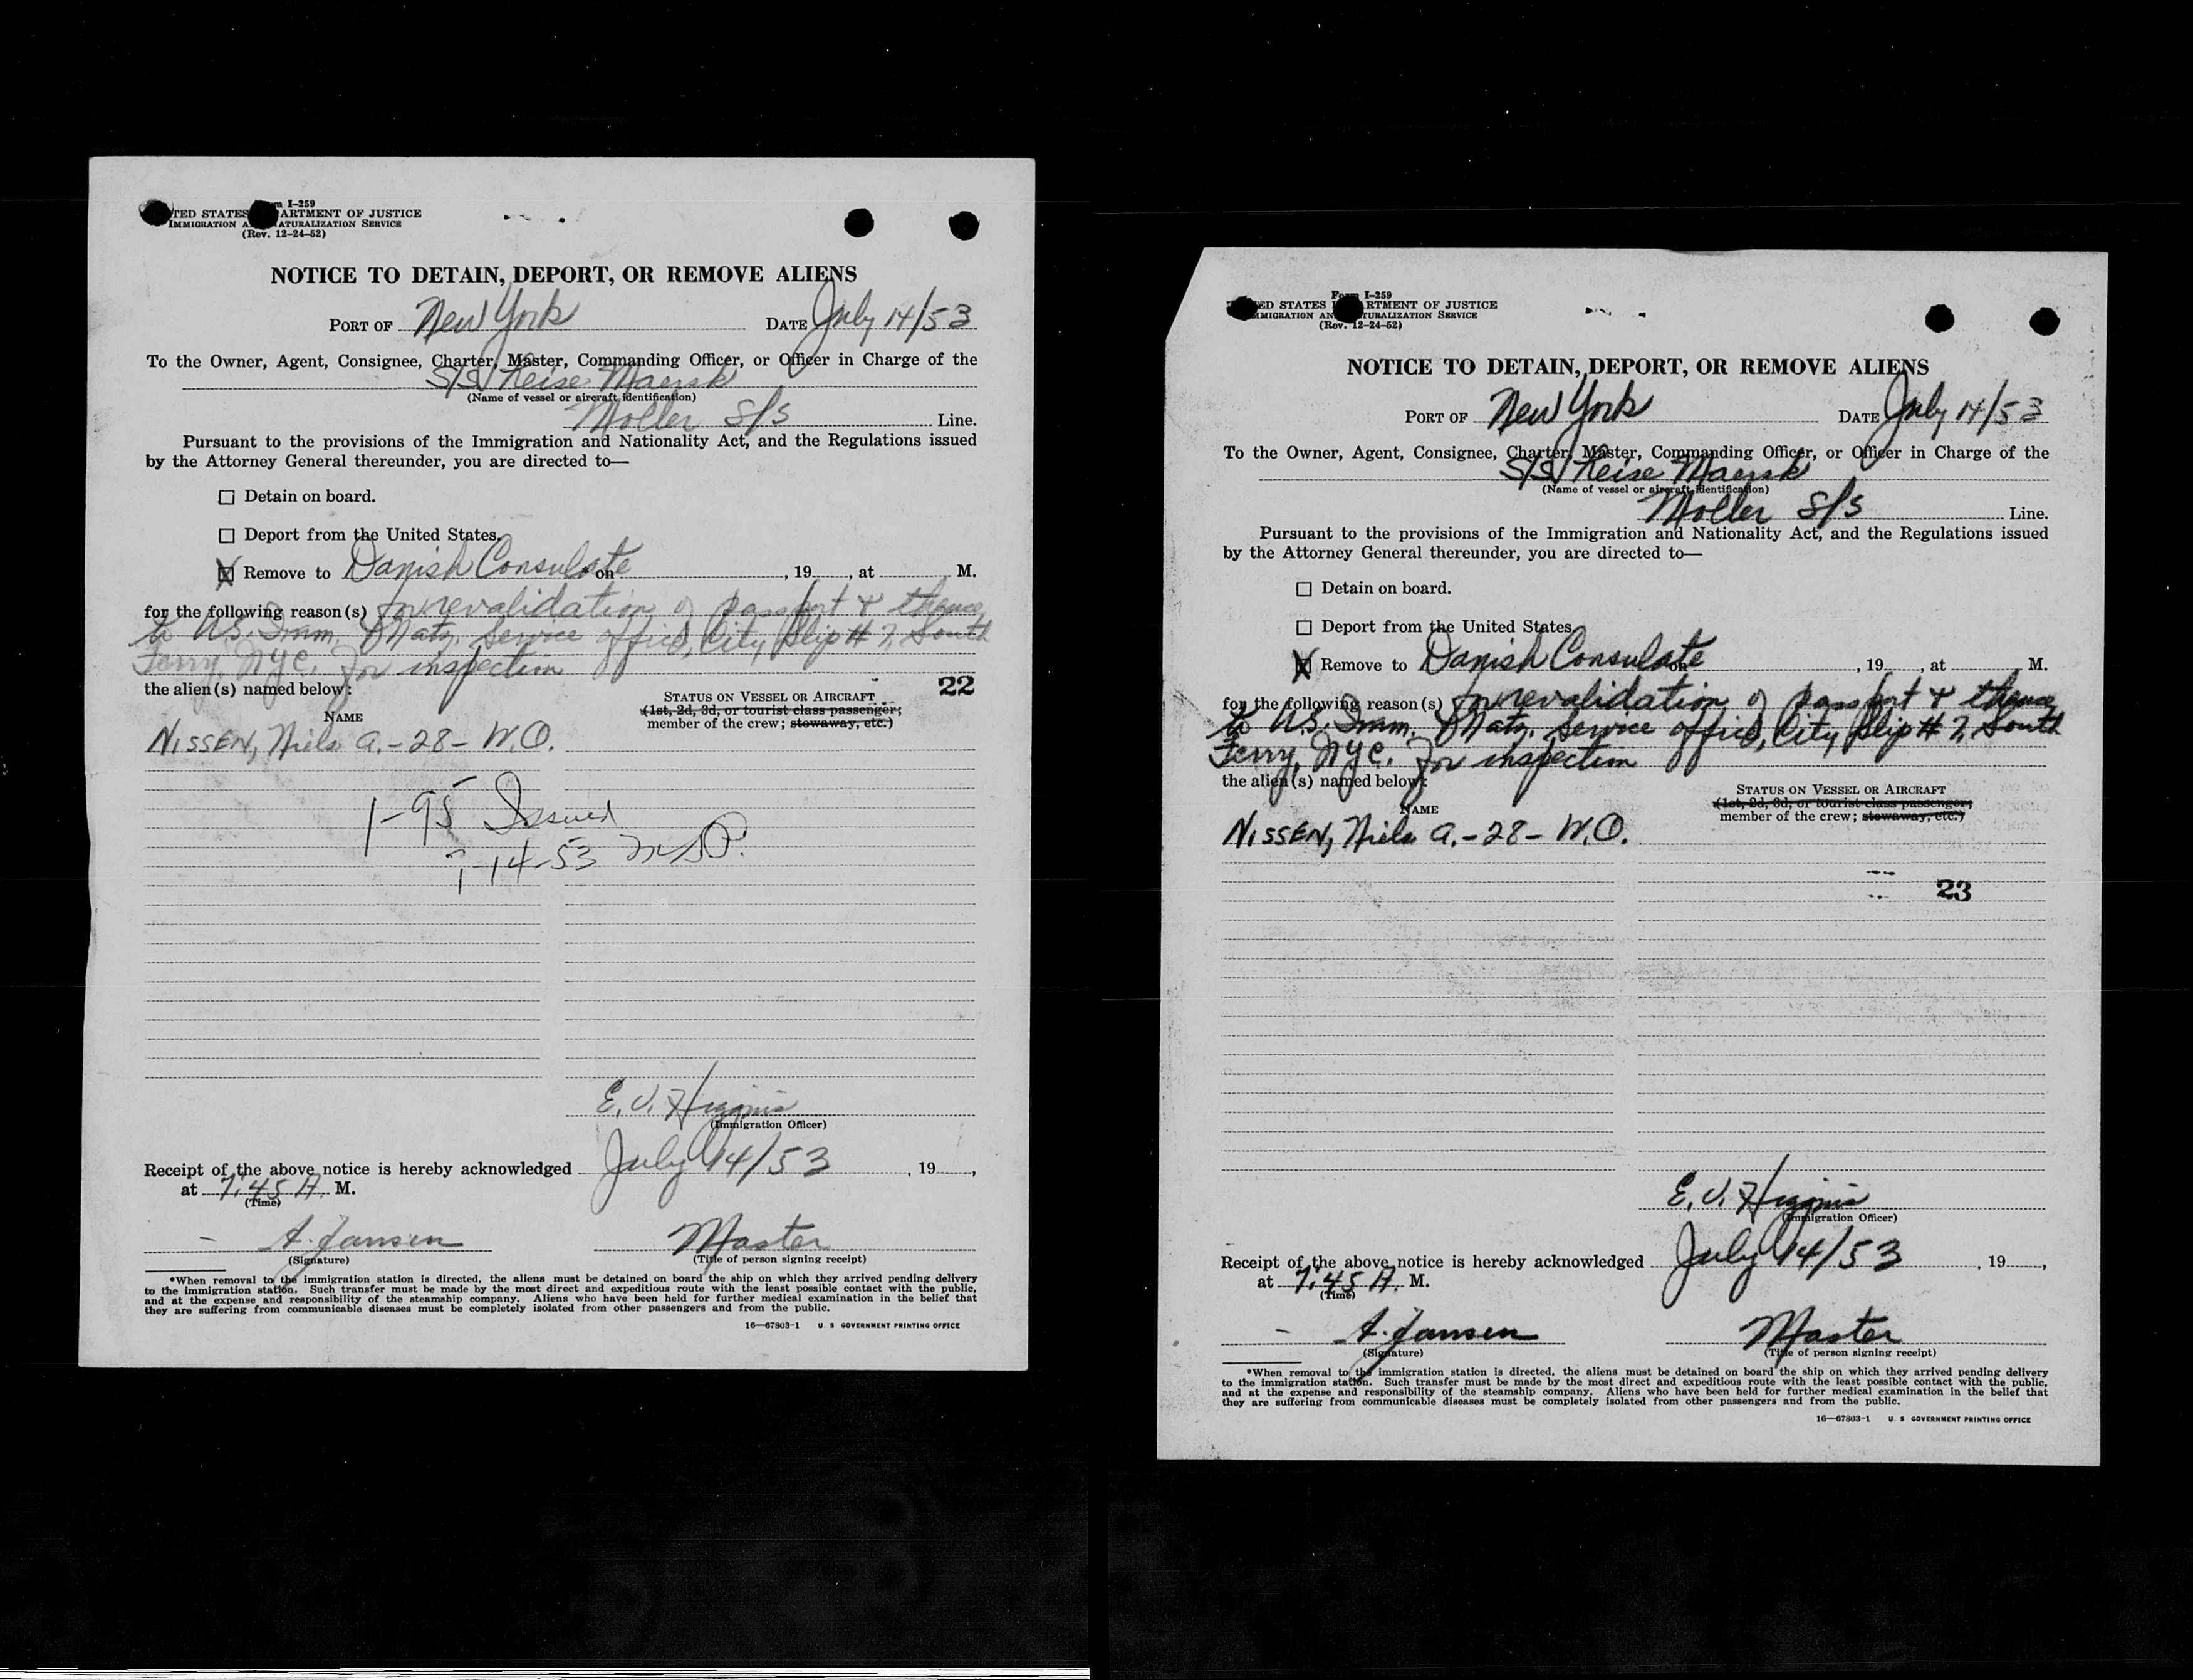 Form I-259
UNITED STATES DEPARTMENT OF JUSTICE
IMMIGRATION AND NATURALIZATION SERVICE
(Rev. 12-24-52)
NOTICE TO DETAIN, DEPORT, OR REMOVE ALIENS
PORT OF New York DATE July 14/53
To the Owner, Agent, Consignee, Charter, Master, Commanding Officer, or Officer in Charge of the
S/S Leise Maersk
(Name of vessel or aircraft identification)
Moller S/S Line.
Pursuant to the provisions of the Immigration and Nationality Act, and the Regulations issued
by the Attorney General thereunder, you are directed to—
Detain on board.
Deport from the United States.
Remove to Danish Consulate on , 19 , at M.
for the following reason(s) for revalidation of passport & thence
to U.S. Imm. & Natz. Service office, City Slip # 7, South
Ferry, NYC. For inspection
the alien(s) named below:
22
STATUS ON VESSEL OR AIRCRAFT
(1st, 2d, 3d, or tourist class passenger;
member of the crew; stowaway, etc.)
NAME
NISSEN, Niels A. - 28 - W.O.
I-95 Issued
7-14-53
E. V. Higgins
(Immigration Officer)
Receipt of the above notice is hereby acknowledged July 14/53 , 19 ,
at 7:45 A. M.
(Time)
A. Jansen Master
(Signature) (Title of person signing receipt)
*When removal to the immigration station is directed, the aliens must be detained on board the ship on which they arrived pending delivery
to the immigration station. Such transfer must be made by the most direct and expeditious route with the least possible contact with the public,
and at the expense and responsibility of the steamship company. Aliens who have been held for further medical examination in the belief that
they are suffering from communicable diseases must be completely isolated from other passengers and from the public.
16—67803-1 U. S GOVERNMENT PRINTING OFFICE
Form I-259
UNITED STATES DEPARTMENT OF JUSTICE
IMMIGRATION AND NATURALIZATION SERVICE
(Rev. 12-24-52)
NOTICE TO DETAIN, DEPORT, OR REMOVE ALIENS
PORT OF New York DATE July 14/53
To the Owner, Agent, Consignee, Charter, Master, Commanding Officer, or Officer in Charge of the
S/S Leise Maersk
(Name of vessel or aircraft identification)
Moller S/S Line.
Pursuant to the provisions of the Immigration and Nationality Act, and the Regulations issued
by the Attorney General thereunder, you are directed to—
Detain on board.
Deport from the United States.
Remove to Danish Consulate on , 19 , at M.
for the following reason(s) for revalidation of passport & thence
to U.S. Imm. & Natz. Service office, City Slip # 7, South
Ferry, NYC. For inspection
the alien(s) named below:
STATUS ON VESSEL OR AIRCRAFT
(1st, 2d, 3d, or tourist class passenger;
member of the crew; stowaway, etc.)
NAME
NISSEN, Niels A. - 28 - W.O.
23
E. V. Higgins
(Immigration Officer)
Receipt of the above notice is hereby acknowledged July 14/53 , 19 ,
at 7:45 A. M.
(Time)
A. Jansen Master
(Signature) (Title of person signing receipt)
*When removal to the immigration station is directed, the aliens must be detained on board the ship on which they arrived pending delivery
to the immigration station. Such transfer must be made by the most direct and expeditious route with the least possible contact with the public,
and at the expense and responsibility of the steamship company. Aliens who have been held for further medical examination in the belief that
they are suffering from communicable diseases must be completely isolated from other passengers and from the public.
16—67803-1 U. S GOVERNMENT PRINTING OFFICE